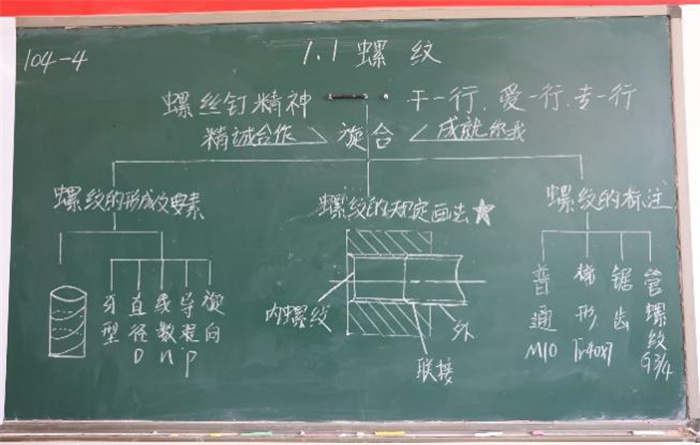 104-4
1.1 螺纹
螺丝钉精神
干一行、爱一行、专一行
精诚合作 > 旋合 < 成就你我
螺纹的形成及要素
螺纹的规定画法☆
螺纹的标注
牙型
直径D
线数n
导程P
旋向
内螺纹
外
联接
普通M10
梯形Tr40x7
锯齿
管螺纹G3/4